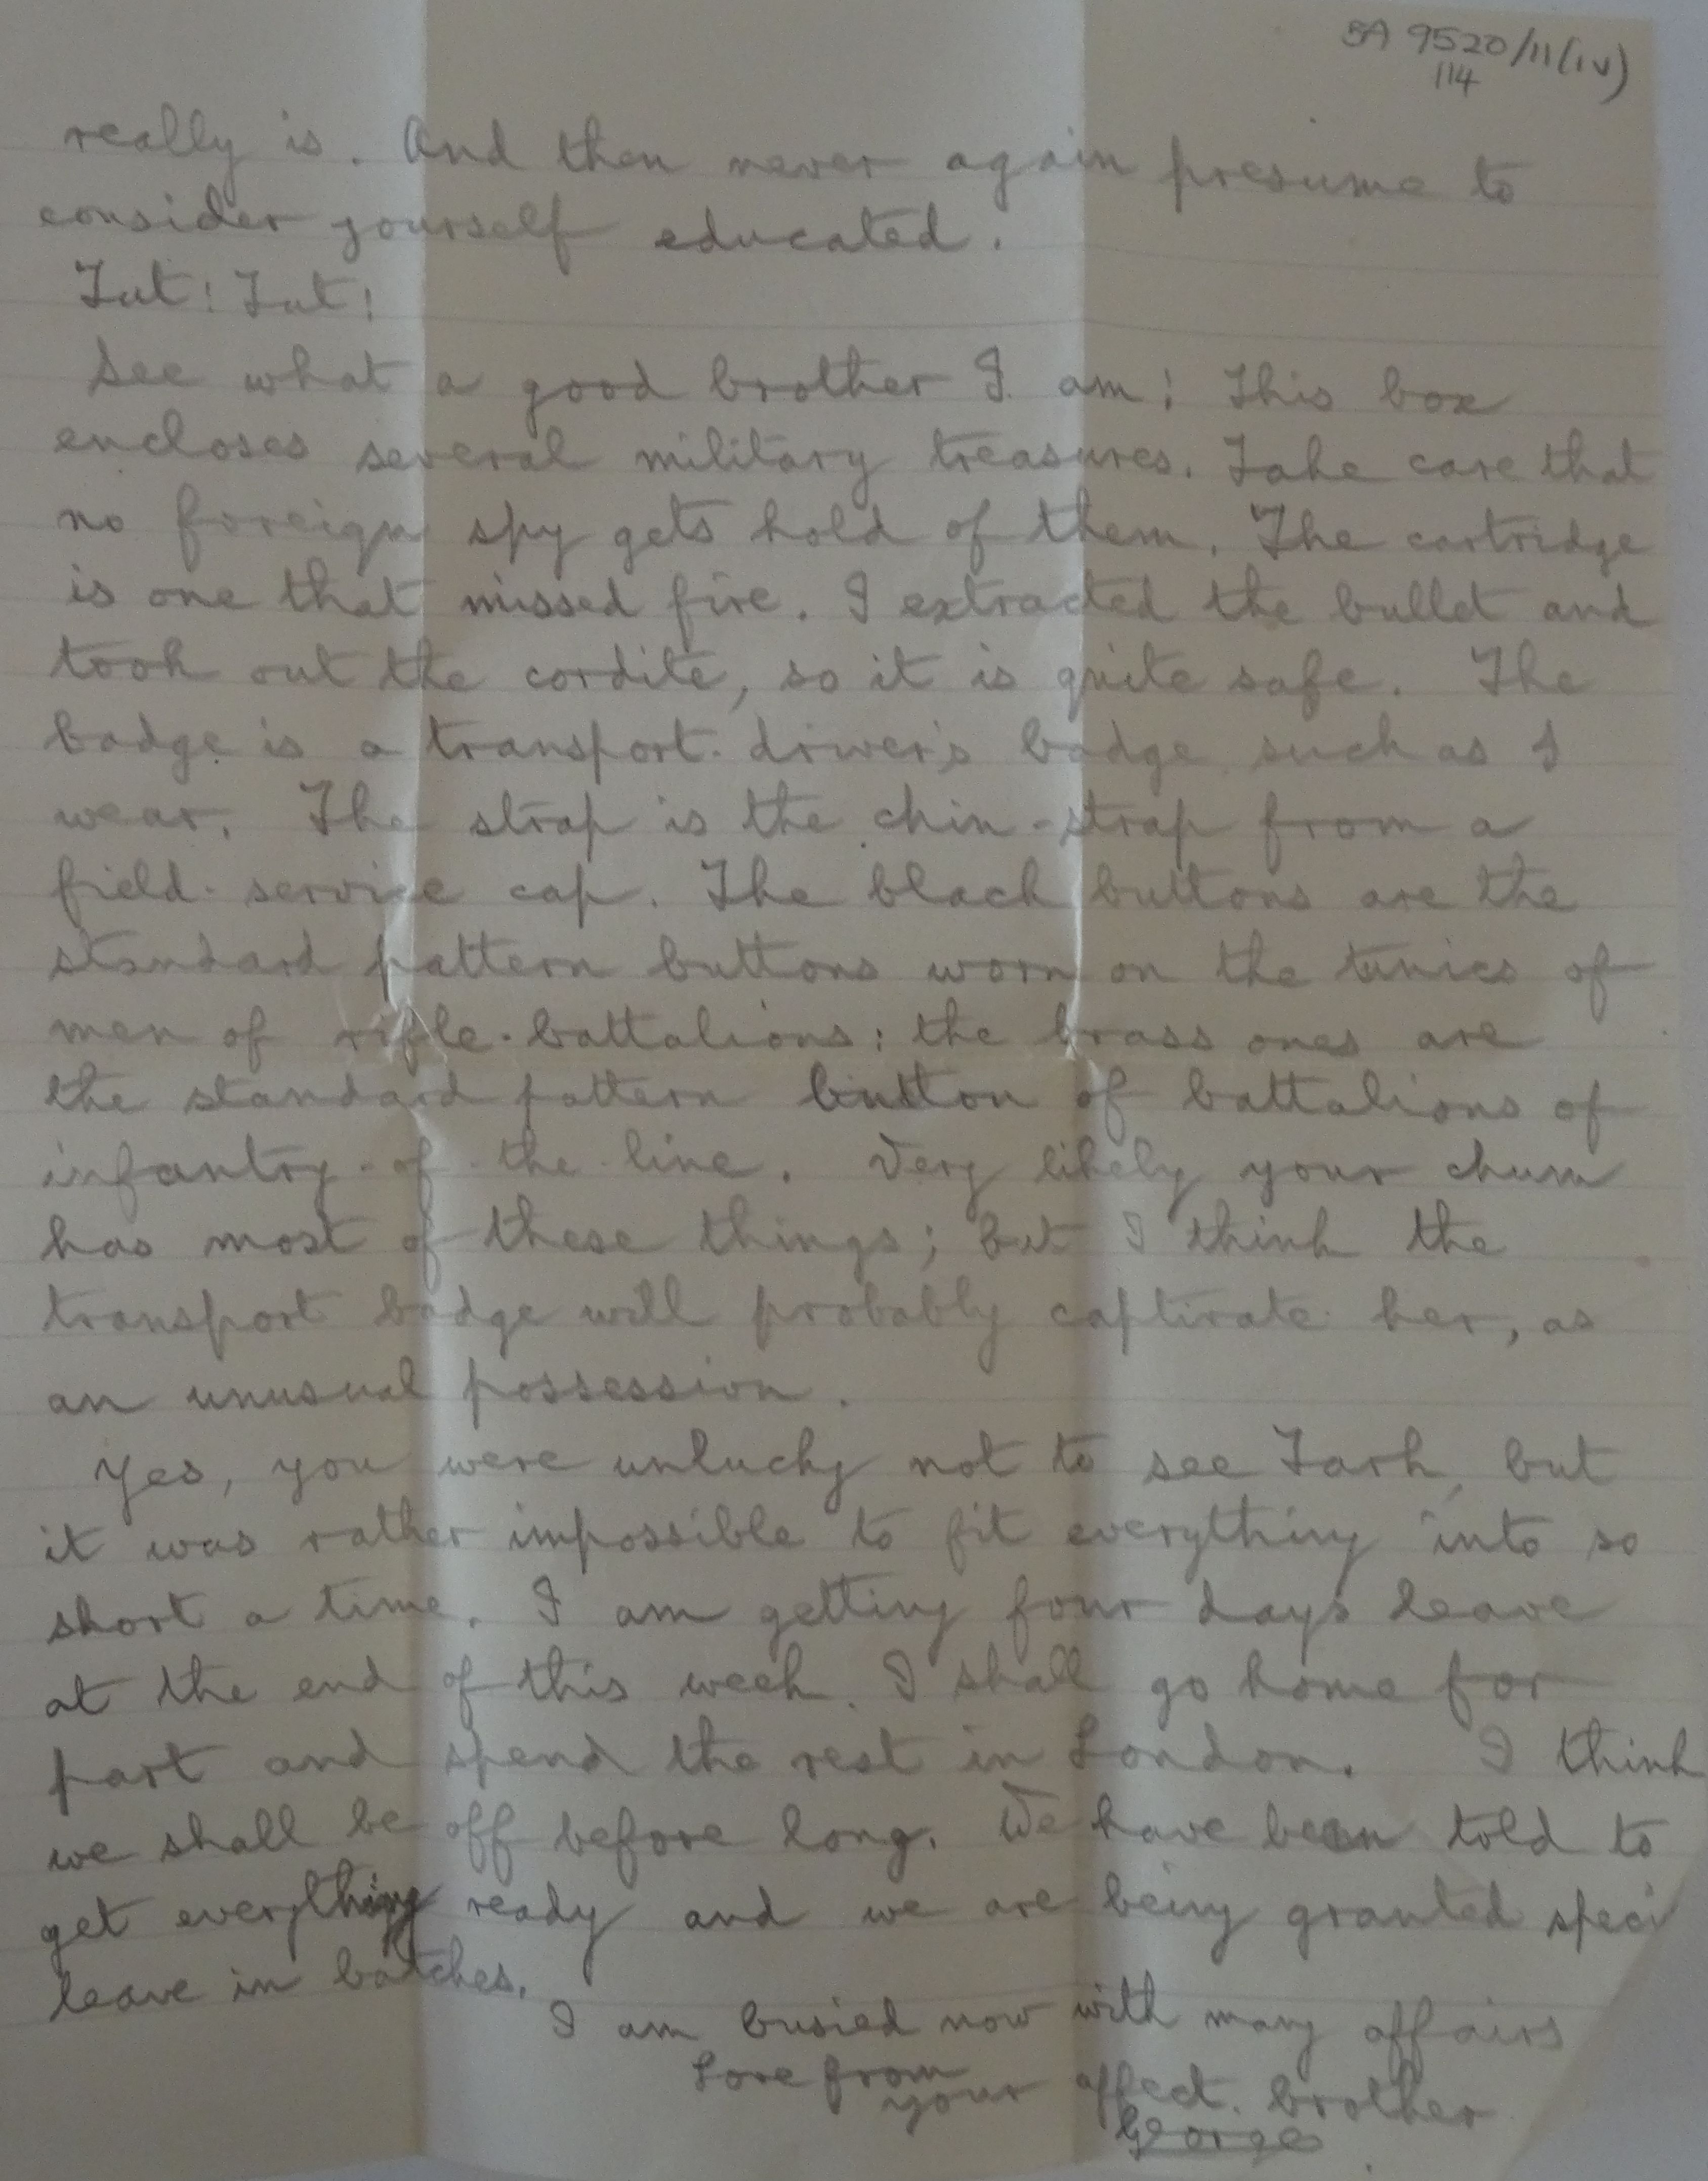 SA 9520/11(iv)
114
really is. And then never again presume to
consider yourself educated.
Tut! Tut!
See what a good brother I am! This box
encloses several military treasures. Take care that
no foreign spy gets hold of them. The cartridge
is one that missed fire. I extracted the bullet and
took out the cordite, so it is quite safe. The
badge is a transport-driver's badge such as I
wear. The strap is the chin-strap from a
field-service cap. The black buttons are the
standard pattern buttons worn on the tunics of
men of rifle-battalions: the brass ones are
the standard pattern button of battalions of
infantry-of-the-line. Very likely your chum
has most of these things; but I think the
transport badge will probably captivate her, as
an unusual possession.
Yes, you were unlucky not to see Tark, but
it was rather impossible to fit everything into so
short a time. I am getting four days leave
at the end of this week. I shall go home for
part and spend the rest in London. I think
we shall be off before long. We have been told to
get everything ready and we are being granted speci
leave in batches.
I am busied now with many affairs
Love from
your affect. brother
George